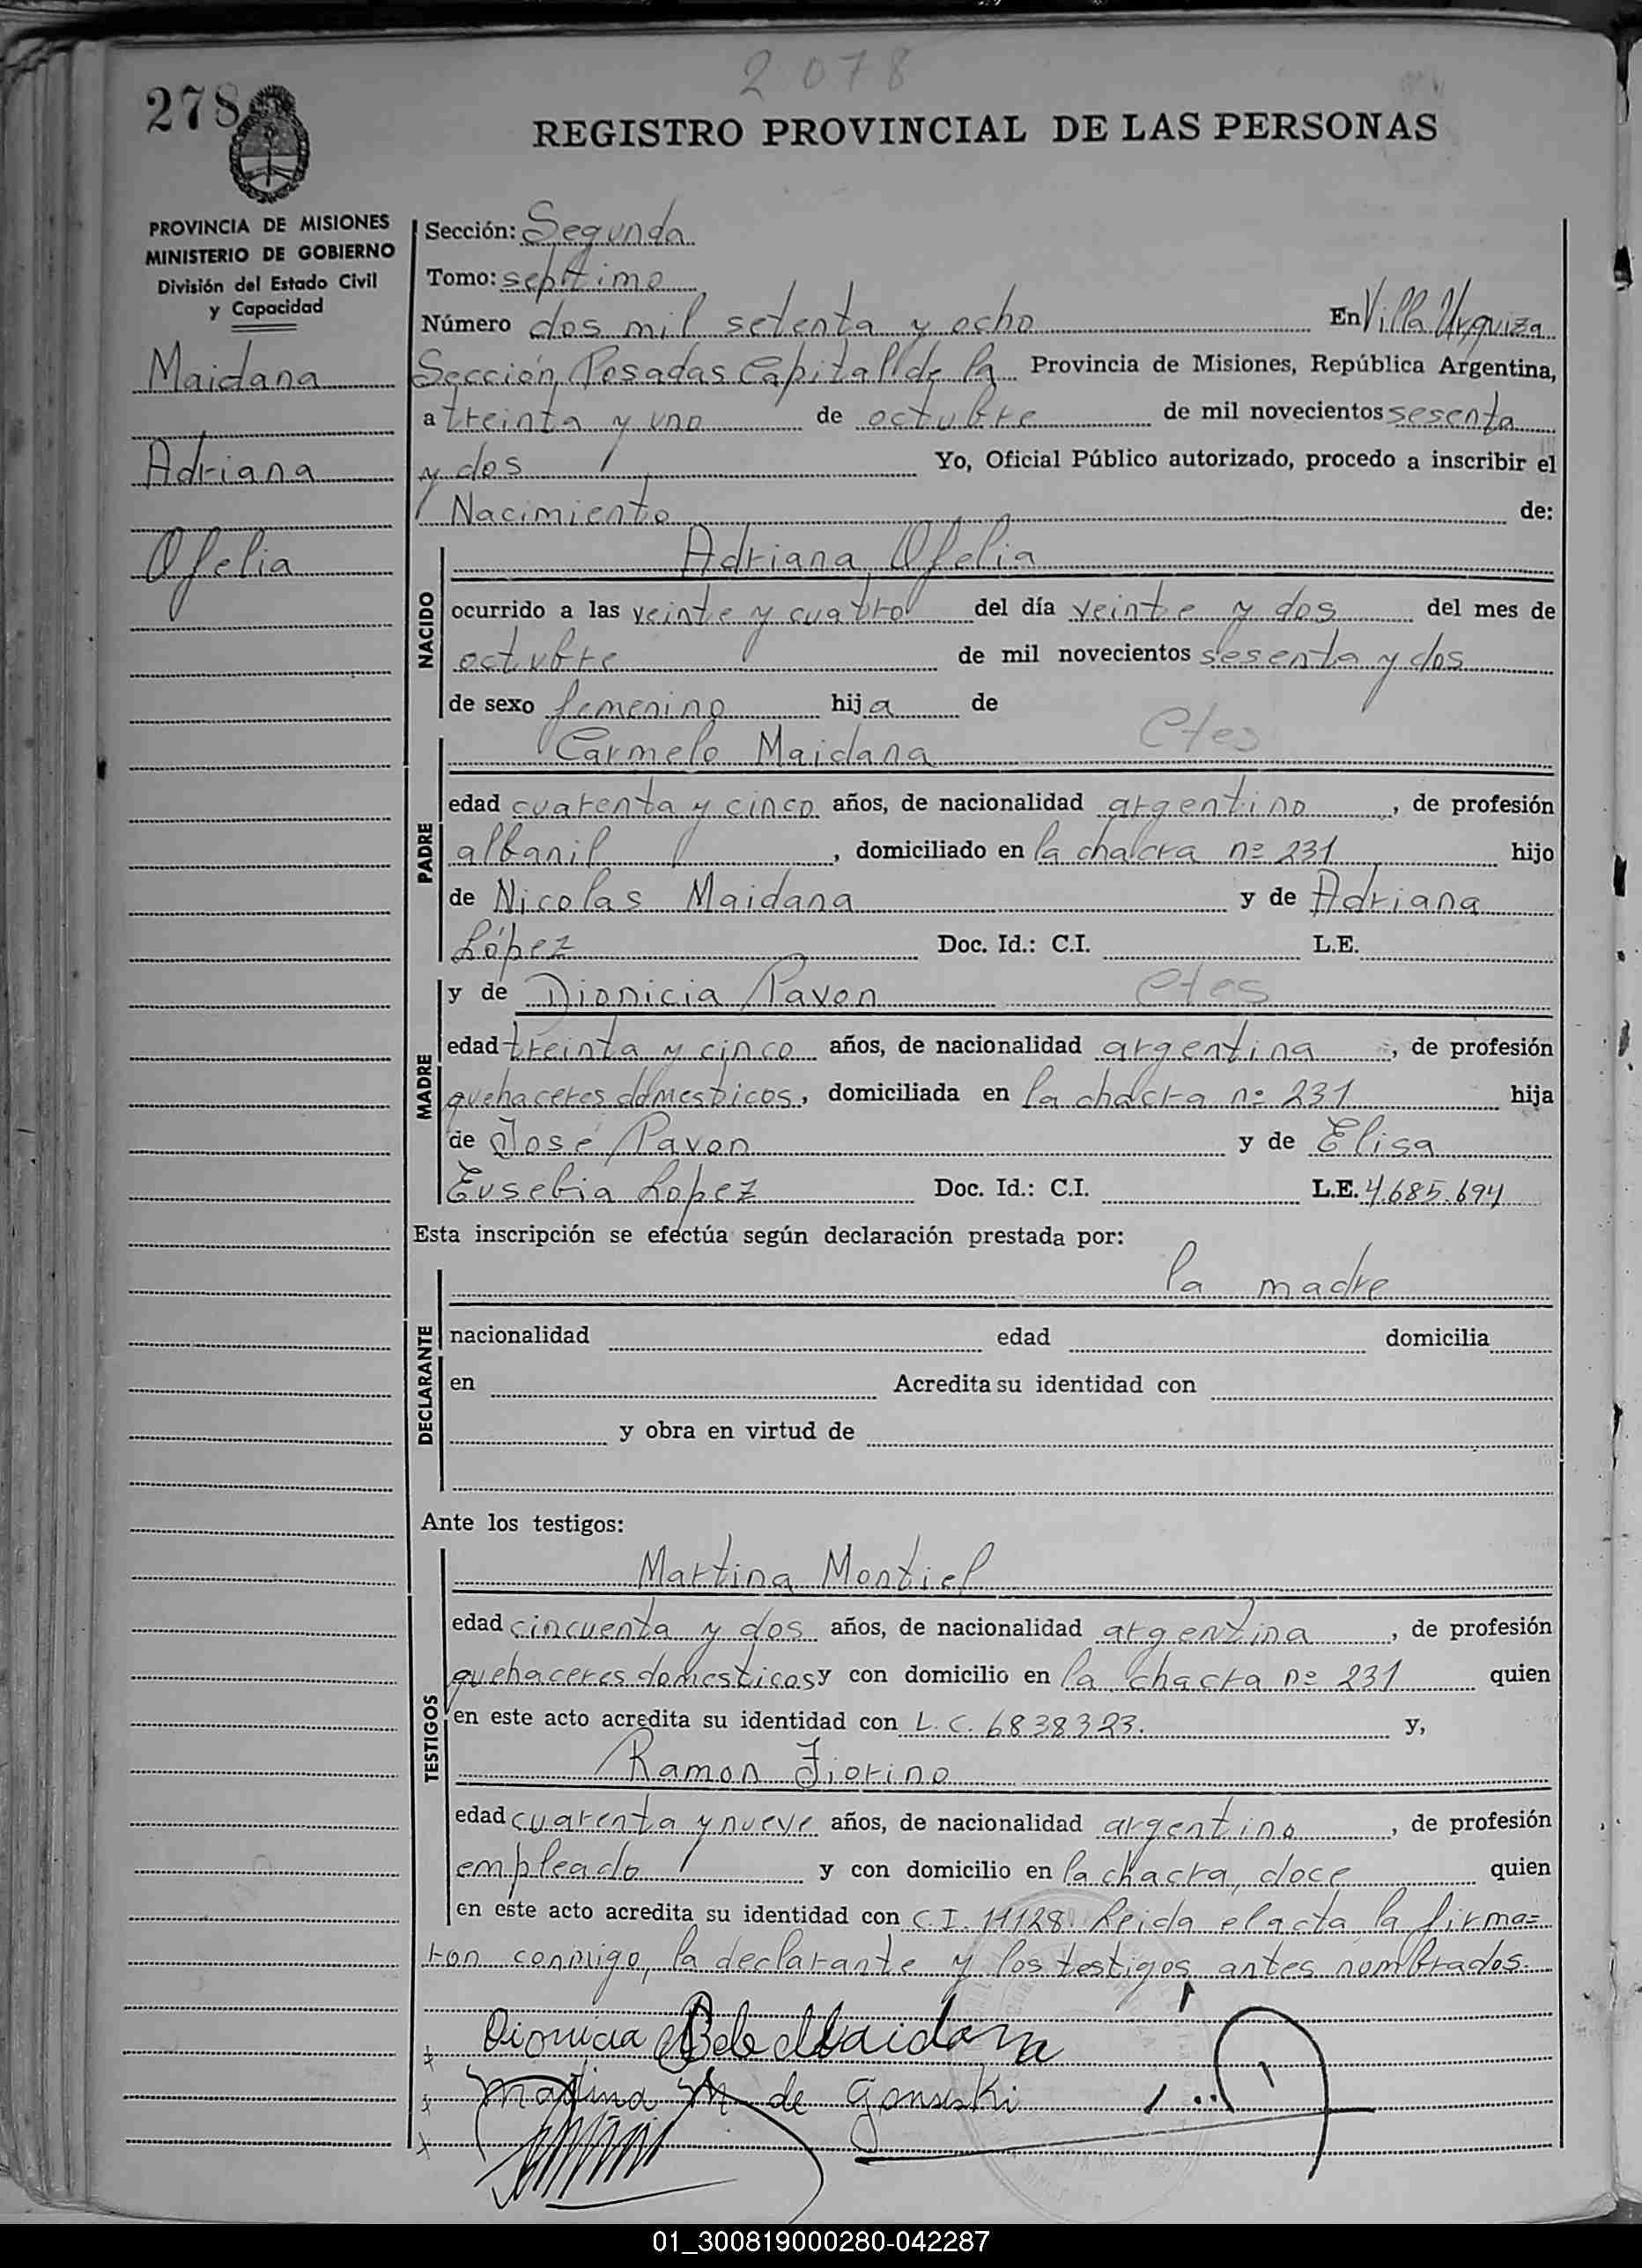 2078
278
REGISTRO PROVINCIAL DE LAS PERSONAS
PROVINCIA DE MISIONES
MINISTERIO DE GOBIERNO
División del Estado Civil
y Capacidad
Maidana
Adriana
Ofelia
Sección: Segunda
Tomo: septimo
Número dos mil setenta y ocho En Villa Urquiza
Sección, Posadas Capital de la Provincia de Misiones, República Argentina,
a treinta y uno de octubre de mil novecientos sesenta
y dos Yo, Oficial Público autorizado, procedo a inscribir el
Nacimiento de:
NACIDO
Adriana Ofelia
ocurrido a las veinte y cuatro del día veinte y dos del mes de
octubre de mil novecientos sesenta y dos
de sexo femenino hija de
PADRE
Carmelo Maidana Ctes
edad cuarenta y cinco años, de nacionalidad argentino, de profesión
albanil, domiciliado en la chacra nº 231 hijo
de Nicolas Maidana y de Adriana
López Doc. Id.: C.I. L.E.
MADRE
y de Dionicia Pavon Ctes
edad treinta y cinco años, de nacionalidad argentina, de profesión
quehaceres domesticos, domiciliada en la chacra nº 231 hija
de José Pavon y de Elisa
Eusebia Lopez Doc. Id.: C.I. L.E. 4.685.694
Esta inscripción se efectúa según declaración prestada por:
DECLARANTE
la madre
nacionalidad edad domicilia
en Acredita su identidad con
y obra en virtud de
Ante los testigos:
TESTIGOS
Martina Montiel
edad cincuenta y dos años, de nacionalidad argentina, de profesión
quehaceres domesticos y con domicilio en la chacra nº 231 quien
en este acto acredita su identidad con L.C. 6838323. y,
Ramon Fiorino
edad cuarenta y nueve años, de nacionalidad argentino, de profesión
empleado y con domicilio en la chacra, doce quien
en este acto acredita su identidad con C.I. 11128. Leida el acta la firma=
ron conmigo, la declarante y los testigos antes nombrados.
Dionicia P de Maidana
Martina M de
01_300819000280-042287